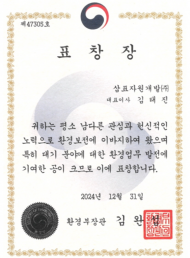 제47305호
표 창 장
삼표자원개발㈜
대표이사 김태진
귀하는 평소 남다른 관심과 헌신적인
노력으로 환경보전에 이바지하여 왔으며
특히 대기 분야에 대한 환경업무 발전에
기여한 공이 크므로 이에 표창합니다.
2024년 12월 31일
환경부장관 김완섭